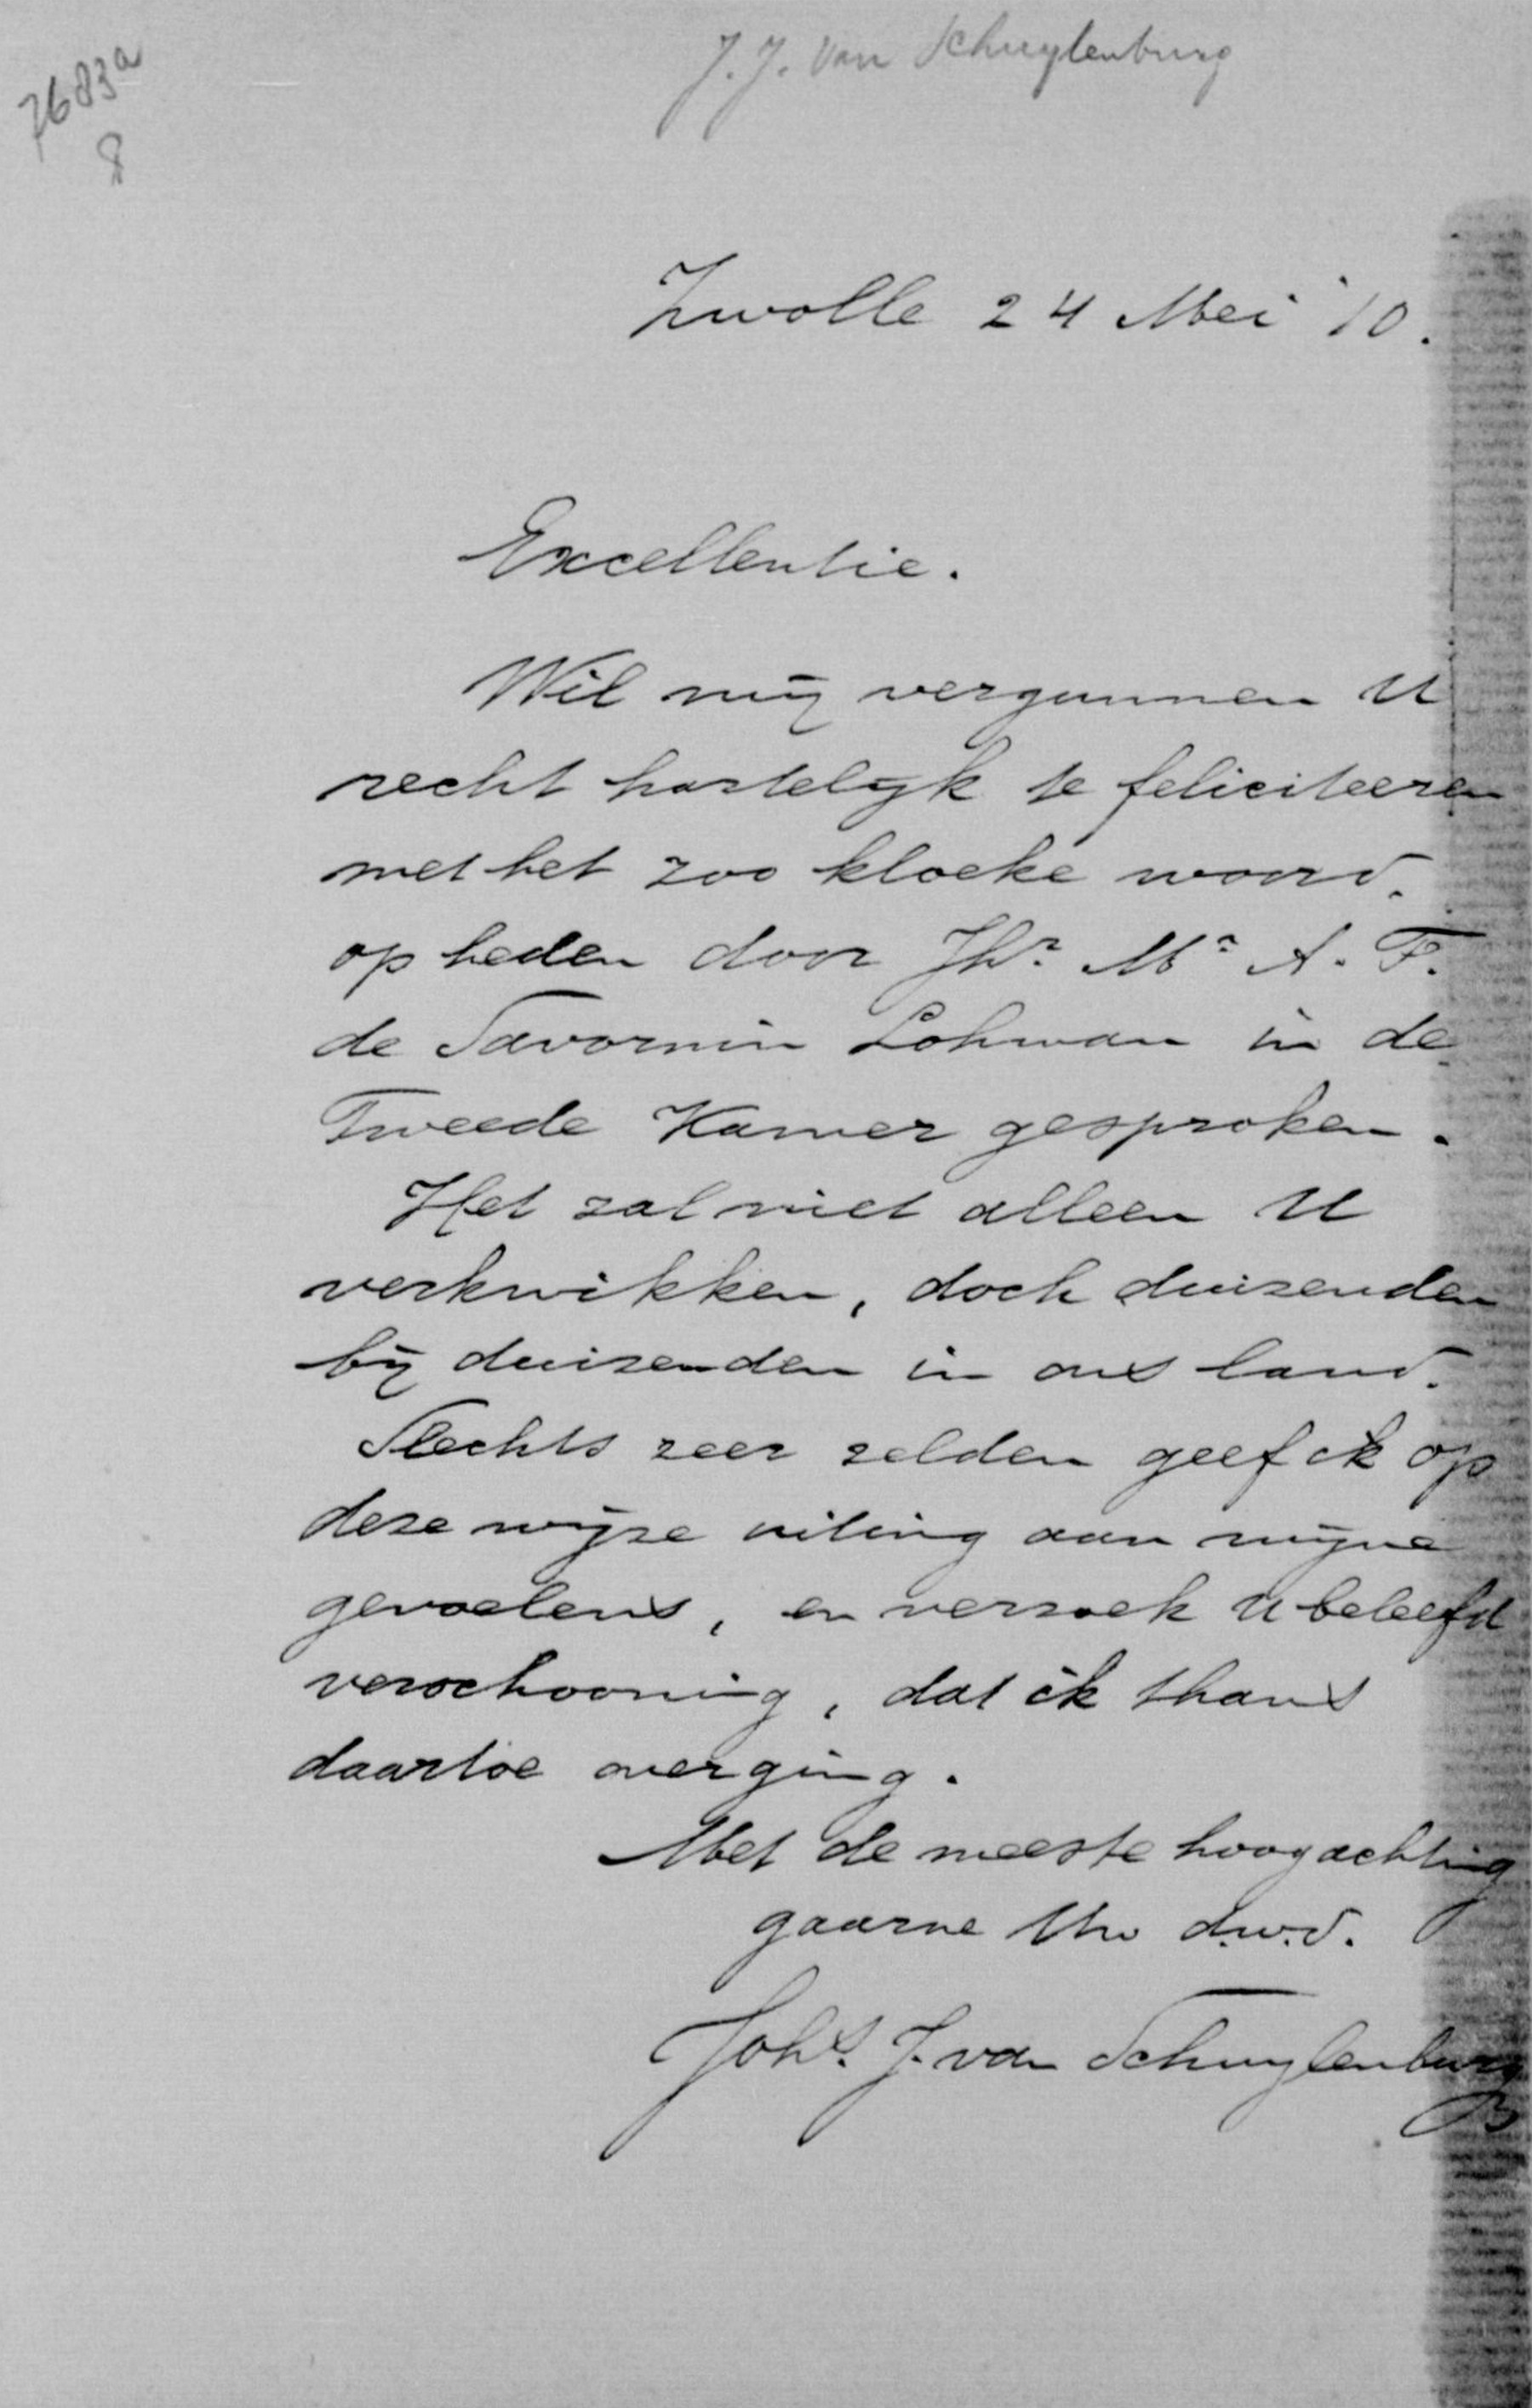 J. J. van Schuylenburg
7683a
8
Zwolle 24 Mei '10.
Excellentie.
Wil mij vergunnen U
recht hartelijk te feliciteeren
met het zoo kloeke woord
op heden door Jhr. Mr. A. F.
de Savornin Lohman in de
Tweede Kamer gesproken.
Het zal niet alleen U
verkwikken, doch duizenden
bij duizenden in ons land.
Slechts zeer zelden geef ik op
deze wijze uiting aan mijne
gevoelens, en verzoek U beleefd
verschooning, dat ik thans
daartoe overging.
Met de meeste hoogachting
gaarne Uw d.w.d.
Johs. J. van Schuylenburg